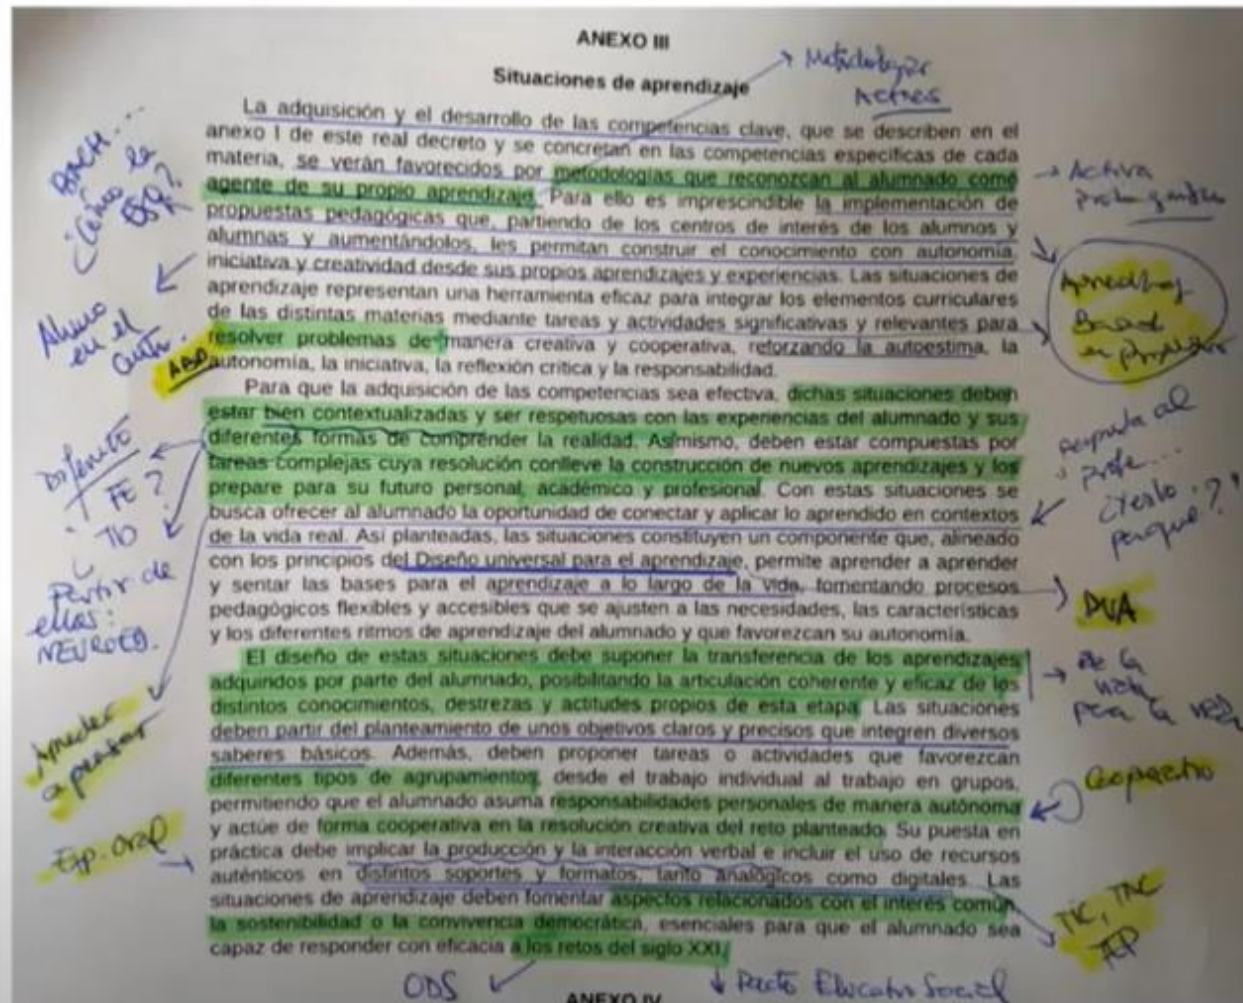 ANEXO III
Situaciones de aprendizaje
La adquisición y el desarrollo de las competencias clave, que se describen en el
anexo I de este real decreto y se concretan en las competencias específicas de cada
materia, se verán favorecidos por metodologías que reconozcan al alumnado como
agente de su propio aprendizaje. Para ello es imprescindible la implementación de
propuestas pedagógicas que, partiendo de los centros de interés de los alumnos y
alumnas y aumentándolos, les permitan construir el conocimiento con autonomía,
iniciativa y creatividad desde sus propios aprendizajes y experiencias. Las situaciones de
aprendizaje representan una herramienta eficaz para integrar los elementos curriculares
de las distintas materias mediante tareas y actividades significativas y relevantes para
resolver problemas de manera creativa y cooperativa, reforzando la autoestima, la
autonomía, la iniciativa, la reflexión crítica y la responsabilidad.
Para que la adquisición de las competencias sea efectiva, dichas situaciones deben
estar bien contextualizadas y ser respetuosas con las experiencias del alumnado y sus
diferentes formas de comprender la realidad. Asimismo, deben estar compuestas por
tareas complejas cuya resolución conlleve la construcción de nuevos aprendizajes y los
prepare para su futuro personal, académico y profesional. Con estas situaciones se
busca ofrecer al alumnado la oportunidad de conectar y aplicar lo aprendido en contextos
de la vida real. Así planteadas, las situaciones constituyen un componente que, alineado
con los principios del Diseño universal para el aprendizaje, permite aprender a aprender
y sentar las bases para el aprendizaje a lo largo de la vida, fomentando procesos
pedagógicos flexibles y accesibles que se ajusten a las necesidades, las características
y los diferentes ritmos de aprendizaje del alumnado y que favorezcan su autonomía.
El diseño de estas situaciones debe suponer la transferencia de los aprendizajes
adquiridos por parte del alumnado, posibilitando la articulación coherente y eficaz de los
distintos conocimientos, destrezas y actitudes propios de esta etapa. Las situaciones
deben partir del planteamiento de unos objetivos claros y precisos que integren diversos
saberes básicos. Además, deben proponer tareas o actividades que favorezcan
diferentes tipos de agrupamientos, desde el trabajo individual al trabajo en grupos,
permitiendo que el alumnado asuma responsabilidades personales de manera autónoma
y actúe de forma cooperativa en la resolución creativa del reto planteado. Su puesta en
práctica debe implicar la producción y la interacción verbal e incluir el uso de recursos
auténticos en distintos soportes y formatos, tanto analógicos como digitales. Las
situaciones de aprendizaje deben fomentar aspectos relacionados con el interés común,
la sostenibilidad o la convivencia democrática, esenciales para que el alumnado sea
capaz de responder con eficacia a los retos del siglo XXI.
ANEXO IV
BACH...
¿Cómo la
ESO?
Alumno
en el
ABP
Partir de
ellas:
NEUROED.
Aprender
a pensar
Exp. oral
ODS
Metodologías
Activa
Aprendizaje
Basado
en
al
profe...
¿Y esto
DUA
De la
para la
Cooperativo
TIC, TAC
TEP
Pacto Educativo Social